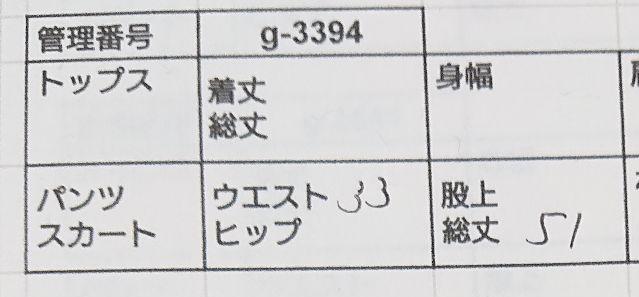 管理番号 g-3394
トップス 着丈 身幅
総丈
パンツ ウエスト 33 股上
スカート ヒップ 総丈 51